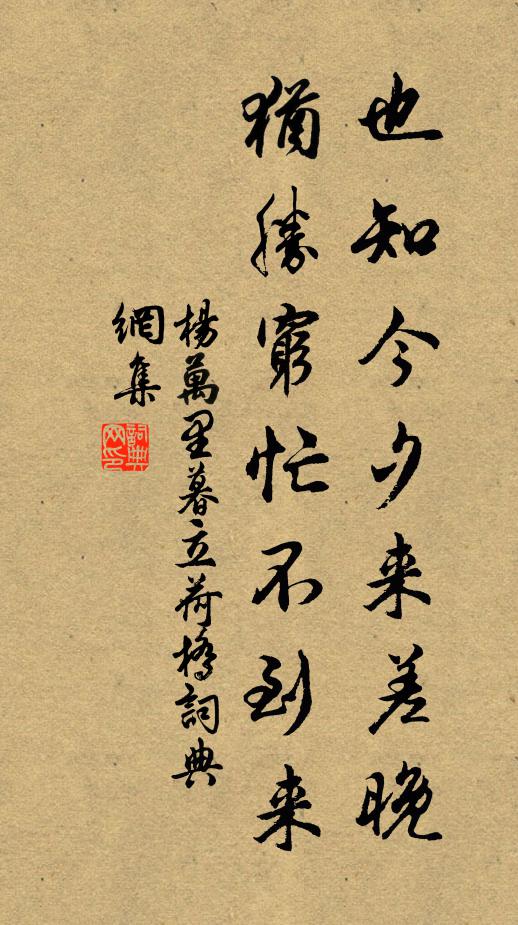 也知今夕来差晚
猶勝窮忙不到来
楊萬里暮立荷橋詞典
網集
詞典網印